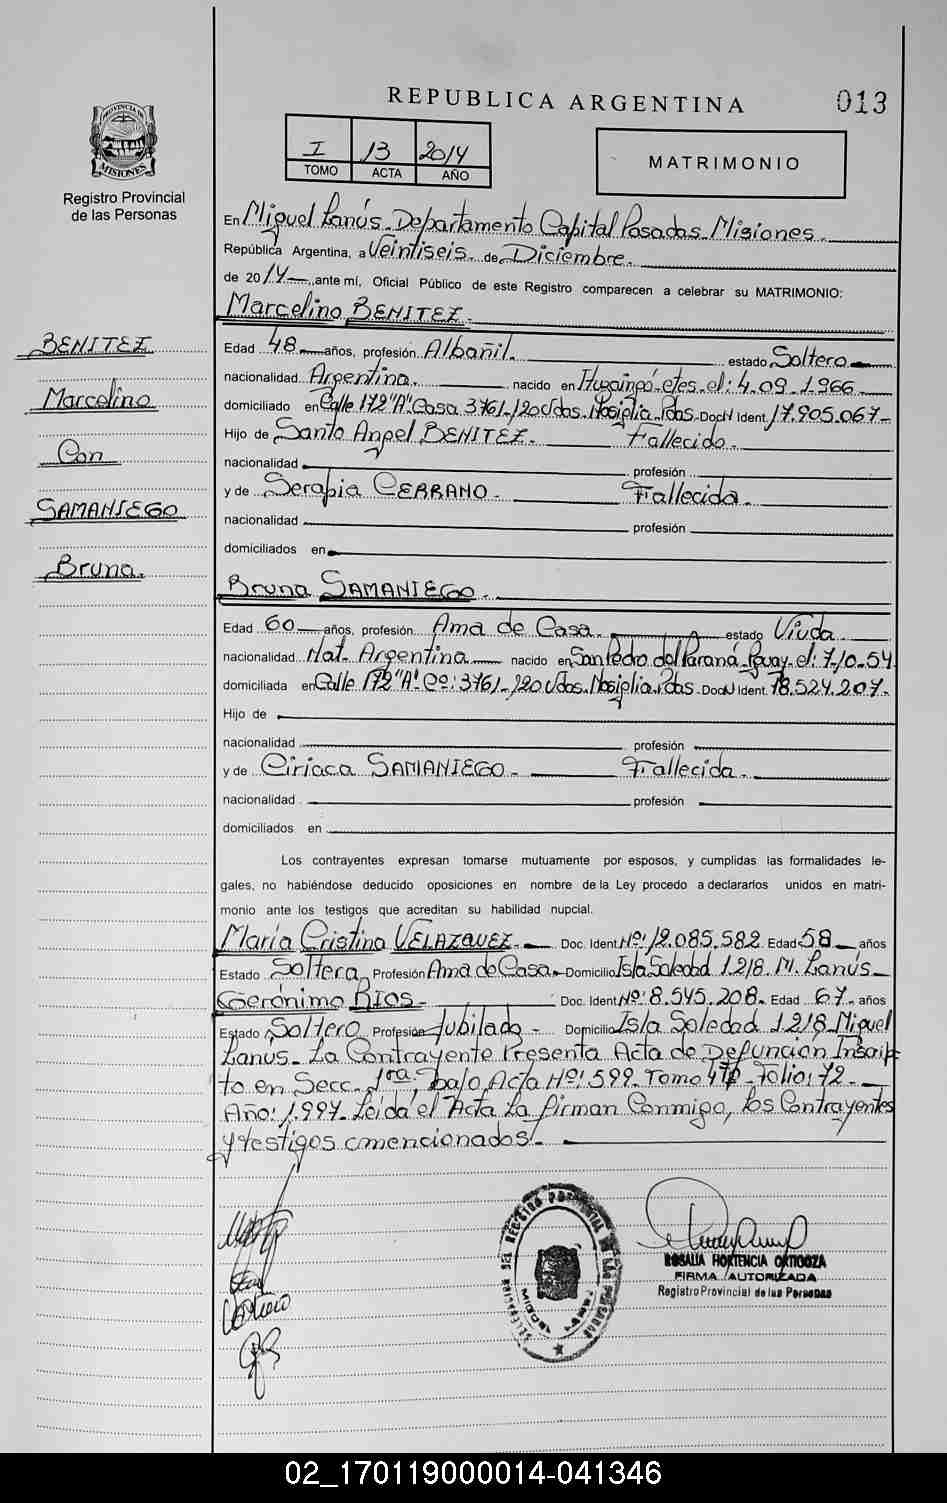 REPUBLICA ARGENTINA
013
PROVINCIA DE
MISIONES
Registro Provincial
de las Personas
I 13 2014
TOMO ACTA AÑO
MATRIMONIO
En Miguel Lanús-Departamento Capital Posadas-Misiones.
República Argentina, a Veintiseis. de Diciembre.
de 2014 ante mí, Oficial Público de este Registro comparecen a celebrar su MATRIMONIO:
Marcelino BENITEZ.
BENITEZ
Marcelino
Con
SAMANIEGO
Bruna.
Edad 48 años, profesión Albañil. estado Soltero
nacionalidad Argentina. nacido en ctes. el: 4.09.1966
domiciliado en Calle 172"A" Casa 3761-120 Vdas. Nosiglia. Pdas. DocN Ident. 17.905.067-
Hijo de Santo Angel BENITEZ. Fallecido.
nacionalidad profesión
y de Serapia CERRANO. Fallecida.
nacionalidad profesión
domiciliados en
Bruna SAMANIEGO.
Edad 60 años, profesión Ama de Casa. estado Viuda
nacionalidad Nat. Argentina nacido en San Pedro del Paraná-Pguay-el: 7-10-54
domiciliada en Calle 172"A" Cº: 3761-120 Vdas. Nosiglia. Pdas. DocN Ident. 18.524.207-
Hijo de
nacionalidad profesión
y de Ciriaca SAMANIEGO. Fallecida.
nacionalidad profesión
domiciliados en
Los contrayentes expresan tomarse mutuamente por esposos, y cumplidas las formalidades le-
gales, no habiéndose deducido oposiciones en nombre de la Ley procedo a declararlos unidos en matri-
monio ante los testigos que acreditan su habilidad nupcial.
María Cristina VELAZQUEZ. Doc. Ident Nº: 12.085.582 Edad 58 años
Estado Soltera Profesión Ama de Casa. Domicilio Isla Soledad 1218. M. Lanús
Gerónimo RIOS- Doc. Ident Nº: 8.545.208- Edad 67- años
Estado Soltero Profesión Jubilado- Domicilio Isla Soledad 1218-Miguel
Lanus. La Contrayente Presenta Acta de Defunción Inscrip-
to en Secc. 1ra, bajo Acta Nº: 599. Tomo Folio: 72-
Año: 1.997. Leida el Acta La firman Conmigo, los Contrayentes
y testigos mencionados.
ROSALIA HORTENCIA ORTIGOZA
FIRMA AUTORIZADA
Registro Provincial de las Personas
02_170119000014-041346